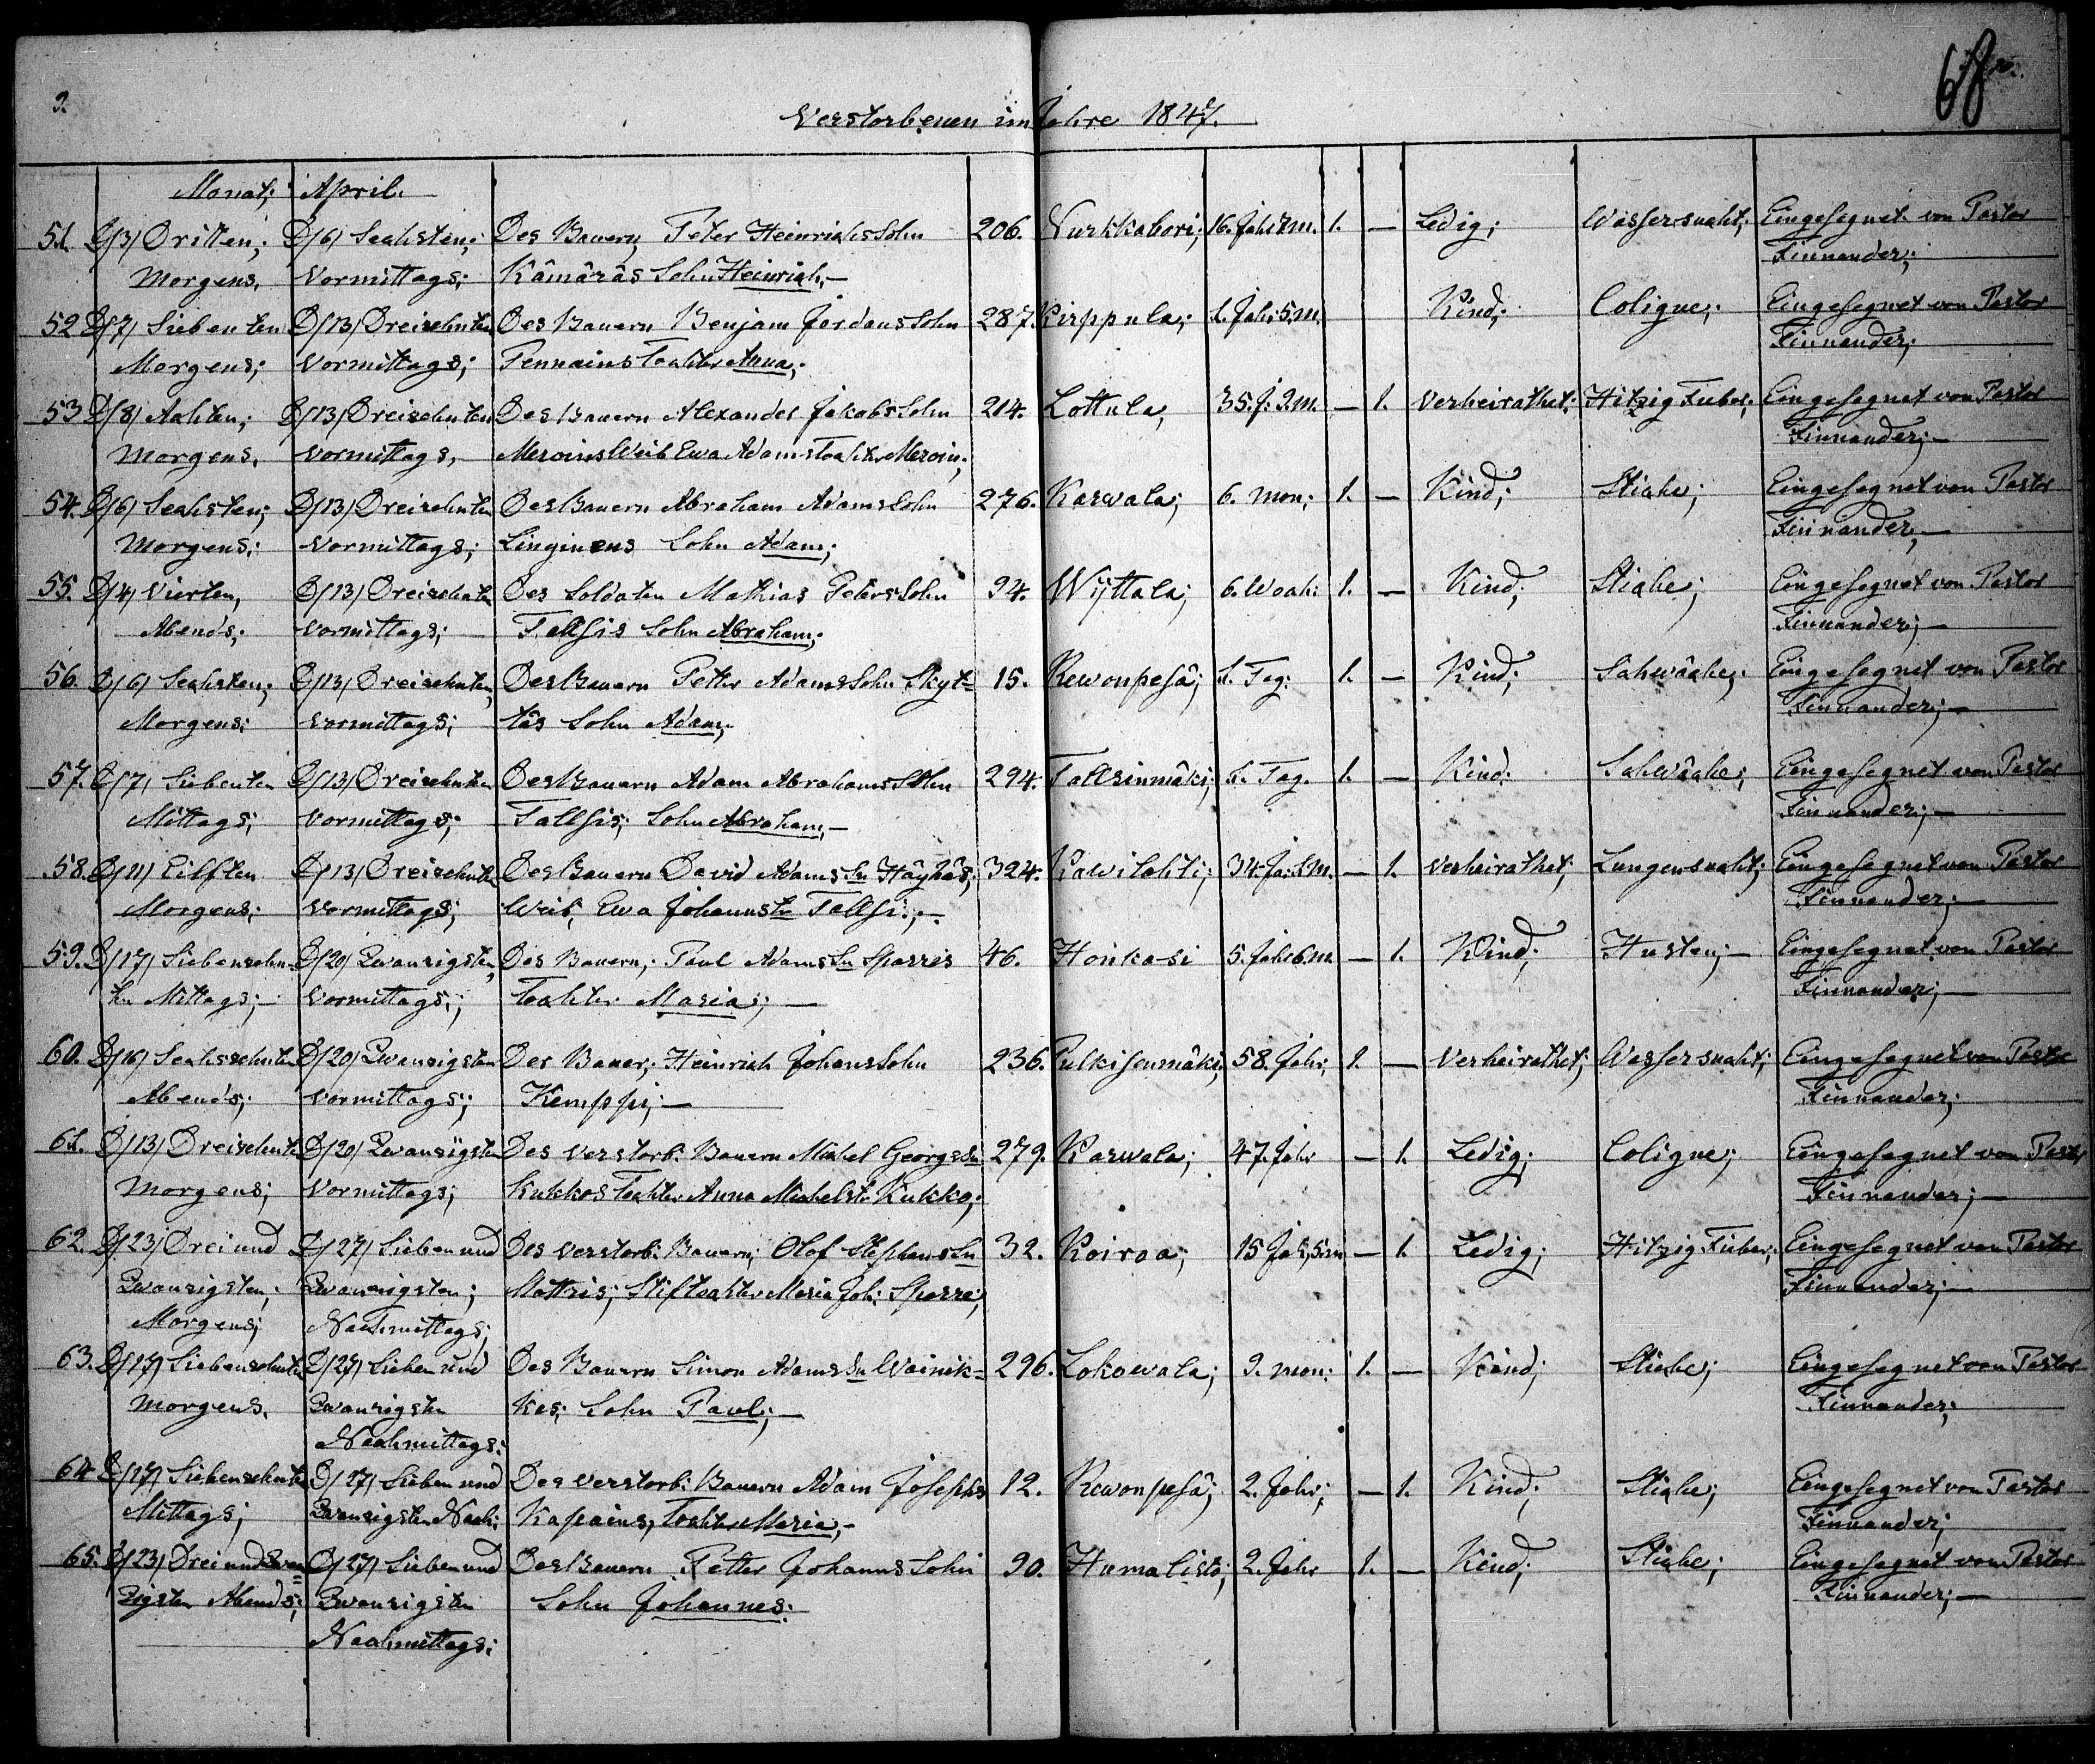 68
Verstorbenen im Jahre 1847.
Monat; April.
51. D/3/ Dritten; D/6/ Sechsten; Des Bauern Peter Heinrichs Sohn 206. Nurkkabori; 16. Jahr 2 m. 1. — Ledig; Wassersucht; Eingesegnet von Pastor
Morgens. Vormittags; Kämäräs Sohn Heinrich. — Finnander;
52 D/7/ Siebenten D/13/ Dreizehnten Des Bauern Benjam Jordans Sohn 287. Kirppula; 1. Jahr 5. m. Kind; Coligue; Eingesegnet von Pastor
Morgens; Vormittags; Pennains Tochter Anna; Finnander;
53 D/8/ Achten; D/13/ Dreizehnten Des Bauern Alexander Jakobs Sohn 214. Lottula, 35. J: 2. m. — 1. Verheirathet; Hitzig Fieber; Eingesegnet von Pastor
Morgens, Vormittags, Meroins Weib Ewa Adams Tochter Meroin; Finnander; —
54. D/6/ Sechsten; D/13/ Dreizehnten Des Bauern Abraham Adams Sohn 276. Karwala; 6. Mon; 1. — Kind; Stiche; Eingesegnet von Pastor
Morgens; Vormittags; Linginens Sohn Adam; Finnander, —
55. D/4/ Vierten, D/13/ Dreizehnten Des Soldaten Mathias Peters Sohn 94. Wÿttala; 6. Woch: 1. — Kind; Stiche; Eingesegnet von Pastor
Abends; Vormittags; Tallsis Sohn Abraham; Finnander; —
56. D/6/ Sechsten; D/13/ Dreizehnten, Des Bauern Petter Adams Sohn Skyt= 15. Rewonpesä; 1. Tag: 1. — Kind; Schwäche; Eingesegnet von Pastor
Morgens; Vormittags; täs Sohn Adam; Finnander; —
57. D/7/ Siebenten D/13/ Dreizehnten Des Bauern Adam Abrahams Sohn 294. Tallsinmäki; 1. Tag. 1. — Kind: Schwäche; Eingesegnet von Pastor
Mittags; Vormittags; Tallsis; Sohn Abraham, — Finnander; —
58. D/11/ Eilften D/13/ Dreizehnten Des Bauern David Adams Sn Häyhäs; 324. Kawilahti; 34. Ja: 1 m. — 1. Verheirathet; Lungensucht; Eingesegnet von Pastor
Morgens; Vormittags; Weib, Ewa Johannstr Tallsi; — Finnander; —
59. D/17/ Siebenzehn= D/20/ Zwanzigsten, Des Bauern; Paul Adams Sn Sparris 46. Honkasi 5. Jahr 6. m — 1. Kind; Husten; — Eingesegnet von Pastor
ten Mittags; — Vormittags; Tochter Maria; — Finnander; —
60. D/16/ Sechszehnten D/20/ Zwanzigsten Der Bauer; Heinrich Johans Sohn 236. Pulkisenmäki; 58. Jahr; 1. — Verheirathet; Wassersucht; Eingesegnet von Pastor
Abends; Vormittags; Kemppi; — Finnander;
61. D/13/ Dreizehnten D/20/ Zwanzigsten Des verstorb: Bauern Mickel Georgs Sn 279. Karwala; 47. Jahr — 1. Ledig; Coligue; Eingesegnet von Pastor
Morgens; Vormittags; Kukkos Tochter Anna Mickelstr Kukko; Finnander; —
62. D/23/ Drei und D/27/ Sieben und Des verstorb: Bauern; Olof Stephans Sn 32. Koiroa; 15 Jah; 5. m — 1. Ledig; Hitzig Fieber; Eingesegnet von Pastor
Zwanzigsten; Zwanzigsten; Mattris; Stieftochter Maria Joh: Sparri; Finnander; —
Morgens; Nachmittags;
63. D/17/ Siebenzehnten D/27/ Sieben und Des Bauern Simon Adams Sn Wainik= 296. Lokowala; 9. Mon: 1. — Kind; Stiche; Eingesegnet von Pastor
Morgens. Zwanzigsten kas; Sohn Paul; — Finnander;
Nachmittags;
64 D/17/ Siebenzehnten D/27/ Sieben und Des verstorb: Bauern Adam Josephs 12. Rewonpesä; 2. Jahr; — 1. Kind; Stiche; Eingesegnet von Pastor
Mittags; Zwanzigsten Nach: Kapains, Tochter Maria, — Finnander;
65. D/23/ Drei und Zwan= D/27/ Sieben und Des Bauern Petter Johanns Sohn 90. Humalisto; 2. Jahr 1. — Kind; Stiche; Eingesegnet von Pastor
zigsten Abends; Zwanzigsten Sohn Johannes: Finnander; —
Nachmittags;